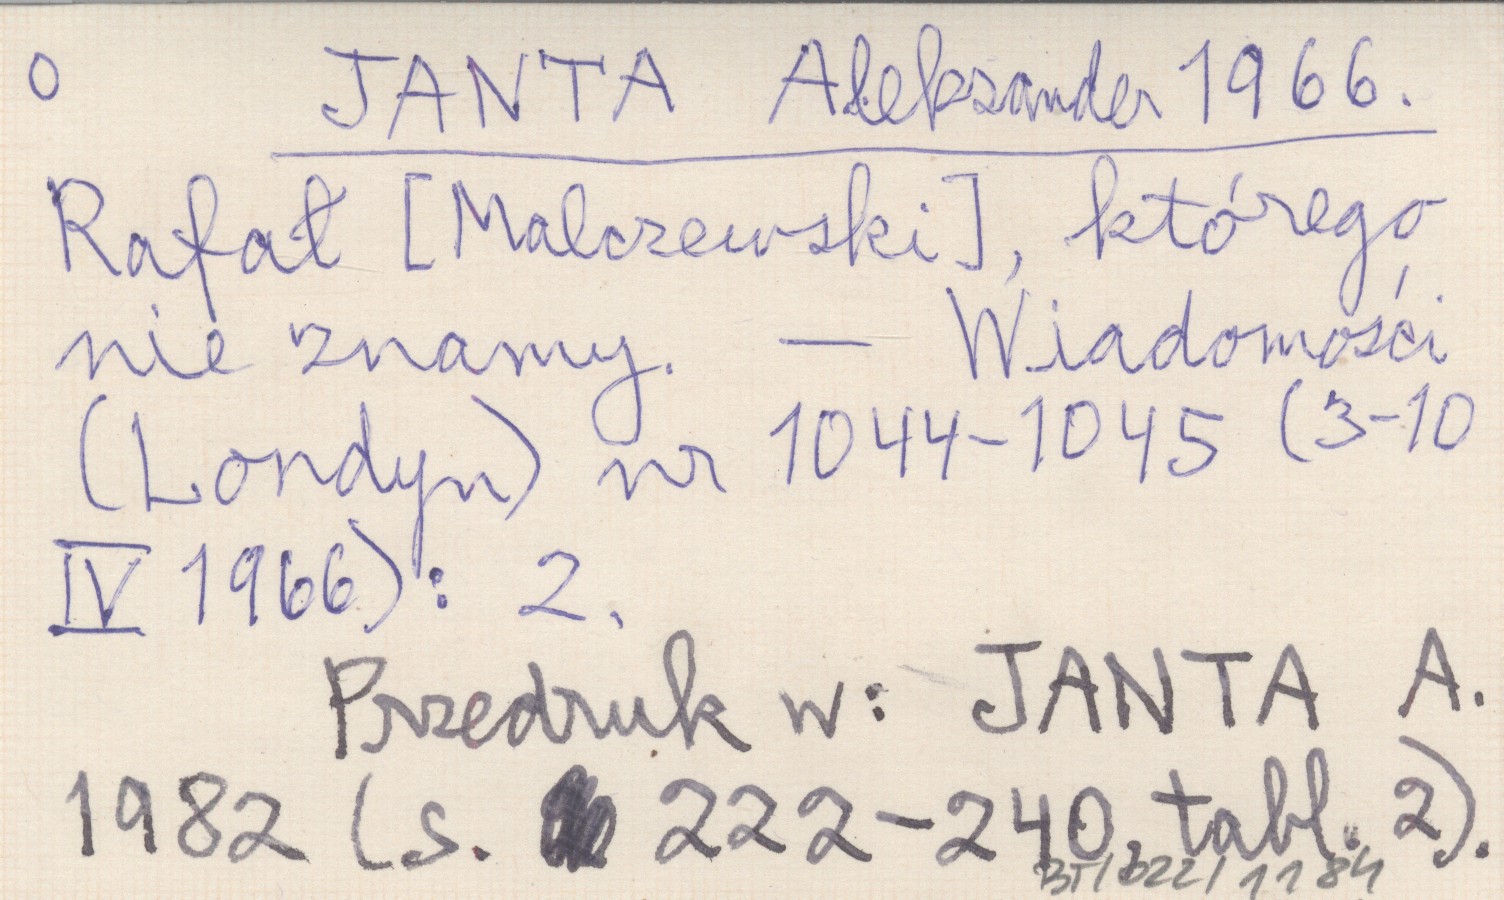 O JANTA Aleksander 1966.
Rafał [Malczewski], którego
nie znamy. — Wiadomości
(Londyn) nr 1044-1045 (3-10
IV 1966): 2.
Przedruk w: JANTA A.
1982 (s. 222-240, tabl. 2).
BT/622/1184